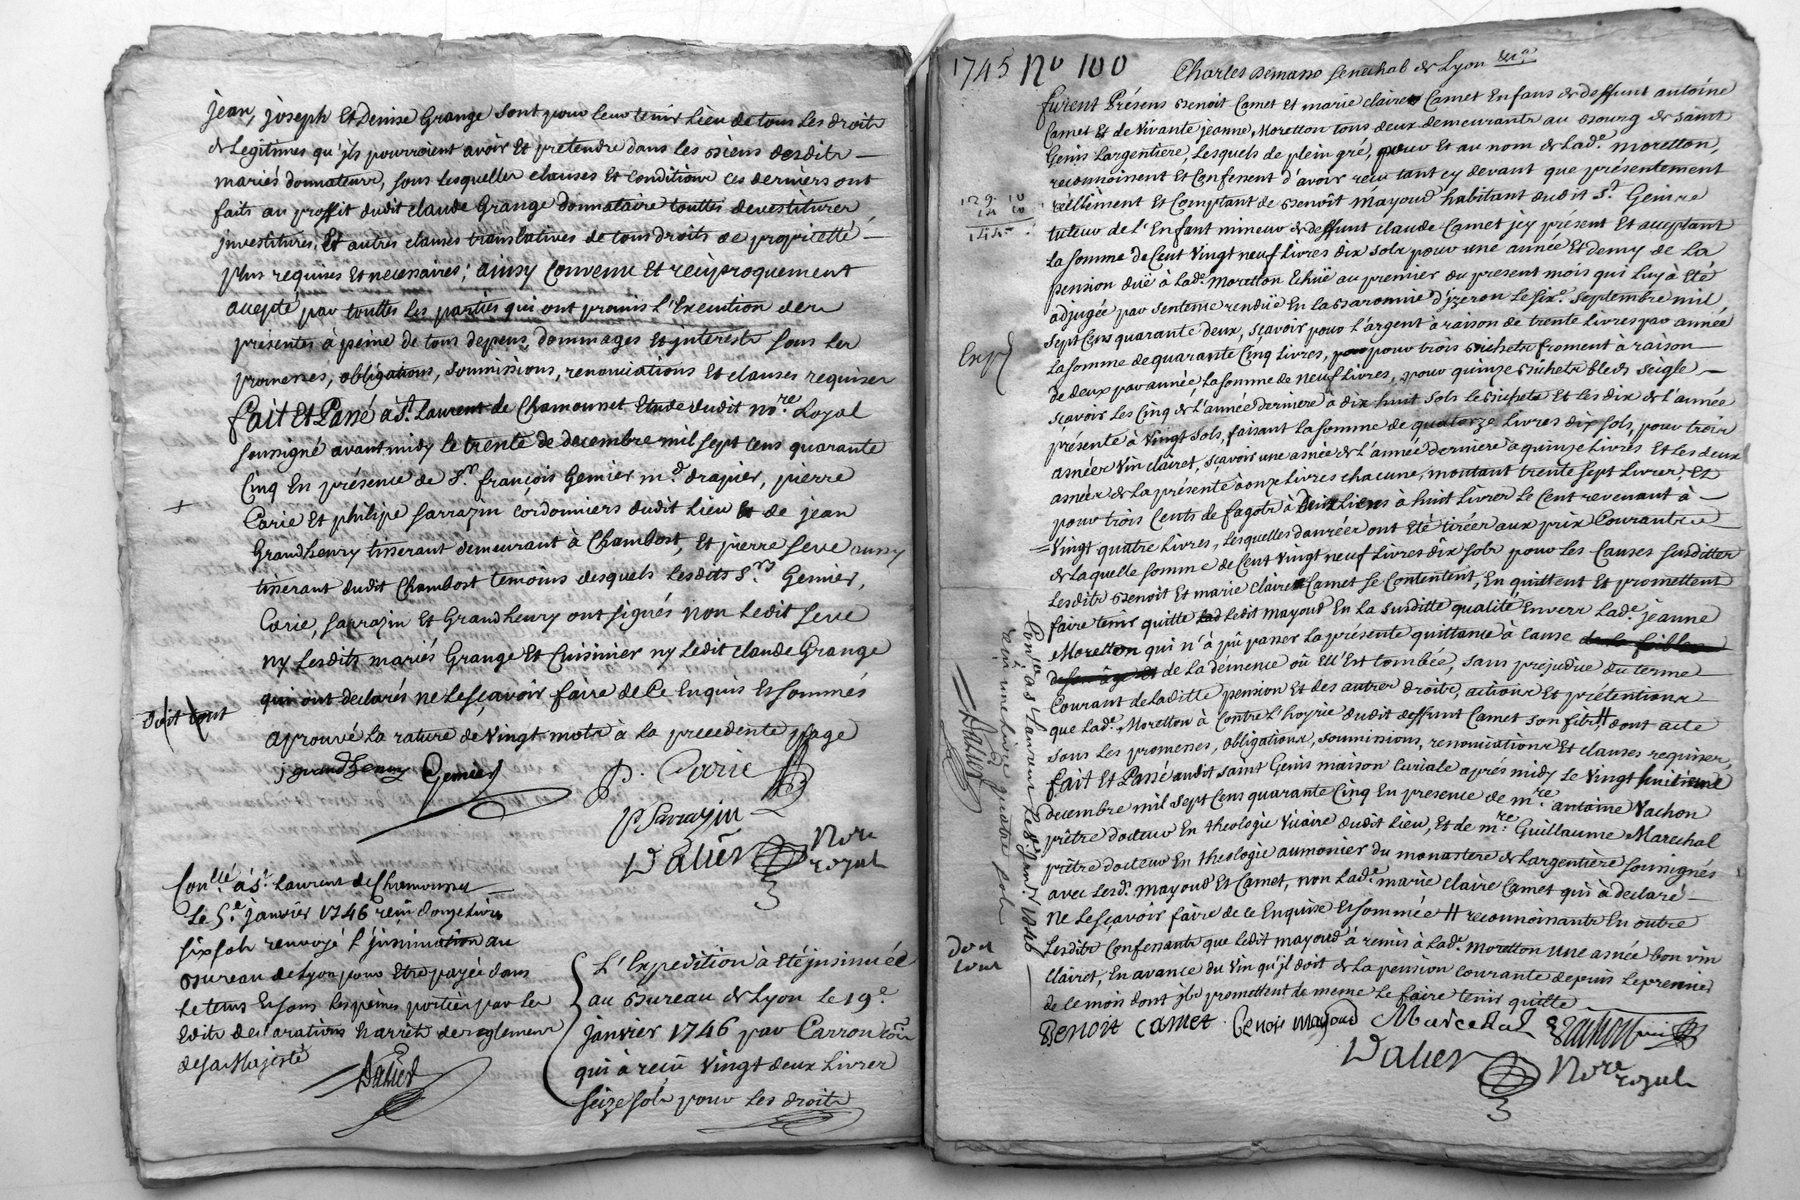 jean, joseph et Denise Grange sont pour leur tenir Lieu de tous Les droits
& Legitimes qu'jls pourroient avoir Et pretendre dans les Biens desdits
mariés donnateurs, sous Lesquelles clauses Et conditions ces derniers ont
faits au proffit dudit claude Grange donnataire touttes devestitures
jnvestitures, Et autres clauses translatives de tous droits de proprietté
plus requises Et necessaires; ainsy Convenu Et reciproquement
accepté par touttes Les parties qui ont promis L'Execution des
présentes à peine de tous depens, dommages Et jnterests sous Les
promesses, obligations, soumissions, renonciations Et clauses requises
fait Et Passé à St. Laurent de Chamousset Etude dudit no.re Royal
soussigné avant midy le trente de decembre mil sept cens quarante
Cinq En présence de Sr. françois Genier m.d drapier, pierre
Corie Et philipe Sarrazin cordonniers dudit Lieu Et de jean
Grandhenry tisserant demeurant à Chambost, Et pierre Seve aussy
tisserant dudit Chambost temoins desquels Lesdits Srs Genier,
Corie, Sarrazin Et Grandhenry ont signés non Ledit Seve
ny Lesdits mariés Grange Et Cuisinier ny Ledit claude Grange
qui ont declarés ne Le sçavoir faire de Ce Enquis Et sommés
aprouvé La rature de Vingt mots à La precedente page
doit tout
j grandhenry Genier P. Corrie
P Sarrazin
Dalier No.re royal
Con.llé à St. Laurent de Chamousset
Le 5.e janvier 1746 reçu douze livres
six sols renvoyé L'jnsinuation au
Bureau de Lyon pour Etre payée dans
Le tems Et sous Les peines portées par Les
Edits declarations Et arrêts de reglement
de Sa Majesté
Dalier
L'Expedition à Eté jnsinuée
au Bureau de Lyon le 19.e
janvier 1746 par Carron
qui à reçu Vingt deux Livres
seize sols pour Les droits
1745 No 100 Charles Demasso Senechal de Lyon
furent Présens Benoit Camet Et marie claire Camet Enfans de deffunt antoine
Camet Et de Vivante jeanne Moretton tous deux demeurants au Bourg de Saint
Genis Largentiere, Lesquels de plein gré, pour Et au nom de Lad.e Moretton,
reconnoissent Et Confessent d'avoir reçu tant cy devant que présentement
réellement Et Comptant de Benoit Mayoud habitant dudit St. Genis
tuteur de L'Enfant mineur de deffunt claude Camet jcy présent Et acceptant
La somme de Cent Vingt neuf Livres dix sols pour une année Et demy de La
pension duë à Lad.e Moretton Echuë au premier du present mois qui Luy à Eté
adjugée par sentence renduë En La Baronnie d'jzeron Le six.e Septembre mil
Sept Cens quarante deux, sçavoir pour L'argent à raison de trente Livres par année
La somme de quarante Cinq Livres, pour trois Bichets froment à raison
de deux par année La somme de neuf Livres, pour quinze Bichets bled Seigle
sçavoir Les Cinq de L'année derniere à dix huit sols Le Bichet Et Les dix de L'année
présente à Vingt sols, faisant La somme de quatorze Livres dix sols, pour trois
asnées Vin clairet, sçavoir une asnée de L'année derniere à quinze Livres Et Les deux
asnées de La présente à onze Livres chacune, montant trente sept Livres, Et
pour trois Cents de fagots à huit Livres Le Cent revenant à
Vingt quatre Livres, Lesquelles danrées ont Eté tirées aux prix Courants
de Laquelle somme de Cent Vingt neuf Livres dix sols pour Les Causes susdittes
Lesdits Benoit Et marie claire Camet se Contentent, En quittent Et promettent
faire tenir quitte Ledit Mayoud En La susditte qualité Envers Lad.e jeanne
Moretton qui n'à pû passer La présente quittance à Cause
de La demence où Ell'Est tombée, sans prejudice du terme
Courant de Laditte pension Et des autres droits, actions Et prétentions
que Lad.e Moretton à Contre L'hoyrie dudit deffunt Camet son fils # dont acte
Sous Les promesses, obligations, soumissions, renonciations Et clauses requises,
fait Et Passé audit Saint Genis maison Curiale après midy Le Vingt huitieme
decembre mil sept Cens quarante Cinq En presence de m.re antoine Vachon
prêtre docteur En theologie Vicaire dudit Lieu, Et de m.re Guillaume Marechal
prêtre docteur En theologie aumonier du monastere de Largentière soussignés
avec Lesd. Mayoud Et Camet, non Lad.e marie claire Camet qui à declaré
ne Le sçavoir faire de ce Enquise Et sommée # reconnoissants En outre
Lesdits Confessants que Ledit Mayoud à remis à Lad.e Moretton une asnée bon vin
clairet, En avance du Vin qu'jl doit de La pension courante depuis Le premier
de ce mois dont jls promettent de meme Le faire tenir quitte
Benoit Camet Benoit Mayoud Marechal Vachon
Dalier No.re royal
129. 10
14 10
144
Exp.
Con.llé à St Laurent Le 8.e janv.r 1746
reçu une livre quatre sols
Dalier
Doit tout